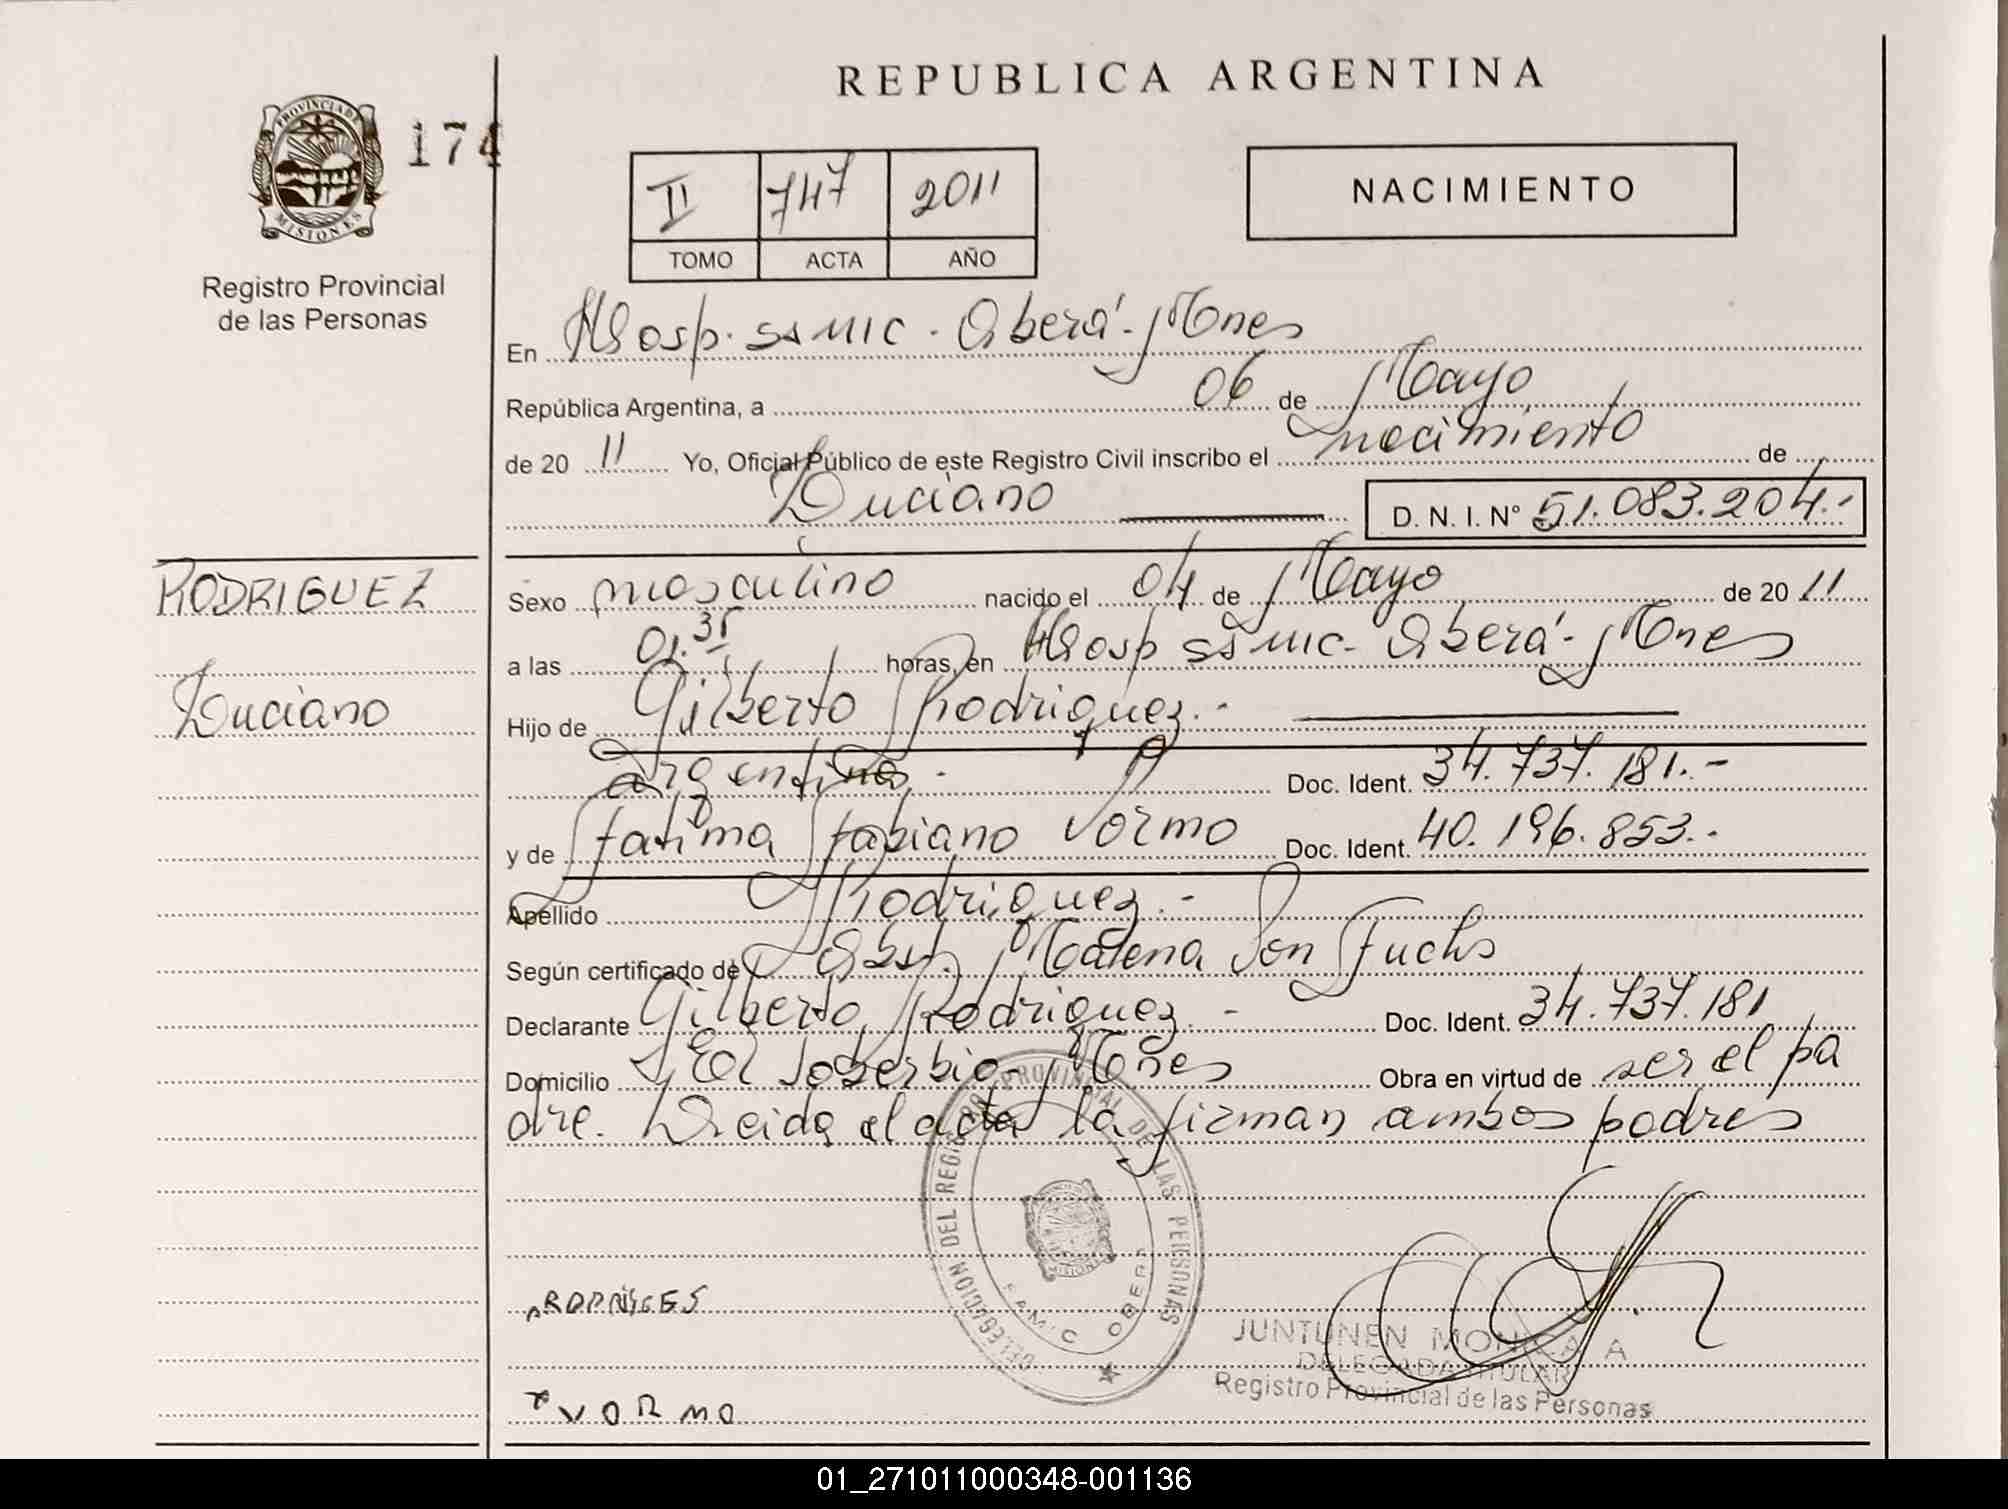 REPUBLICA ARGENTINA
PROVINCIA DE
MISIONES
174
Registro Provincial
de las Personas
II 747 2011
TOMO ACTA AÑO
NACIMIENTO
En Hosp. SAMIC - Oberá - Mnes
República Argentina, a 06 de Mayo
de 20 11 Yo, Oficial Público de este Registro Civil inscribo el nacimiento de
Luciano D. N. I. N° 51.083.204.-
RODRIGUEZ
Luciano
Sexo masculino nacido el 04 de Mayo de 20 11
a las 01.35 horas, en Hosp SAMIC - Oberá - Mnes
Hijo de Gilberto Rodriguez.-
argentino.- Doc. Ident. 34.737.181.-
y de Fatima Fabiana Vormo Doc. Ident. 40.196.853.-
Apellido Rodriguez.-
Según certificado de Obst. Malena Von Fuchs
Declarante Gilberto Rodriguez.- Doc. Ident. 34.737.181
Domicilio El Soberbio - Mnes Obra en virtud de ser el pa
dre. Leida el acta la firman ambos padres
DELEGACION DEL REGISTRO PROVINCIAL DE LAS PERSONAS
SAMIC OBERA
VORMO
JUNTUNEN MONICA A
DELEGADA TITULAR
Registro Provincial de las Personas
01_271011000348-001136